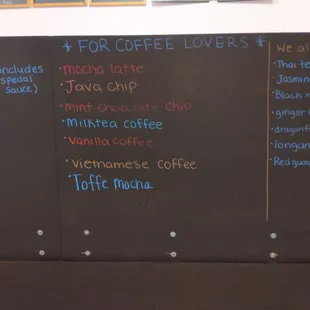 includes
spedal
sauce)
* FOR COFFEE LOVERS *
• mocha latte
• Java chip
• mint chocolate chip
• milktea coffee
• vanilla coffee
• vietnamese coffee
• Toffe mocha
We al
• Thai te
• Jasmin
• Black m
• ginger
• dragonf
• longan
• Red gua